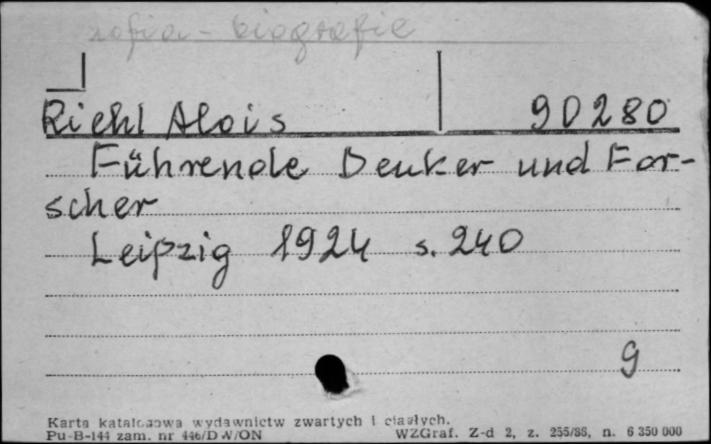 zofia - biografie
Riehl Alois 90280
Führende Denker und For-
scher
Leipzig 1924 s. 240
g
Karta katalogowa wydawnictw zwartych i ciągłych.
Pu-B-144 zam. nr 446/DW/ON WZGraf. Z-d 2, z. 255/86, n. 6 350 000